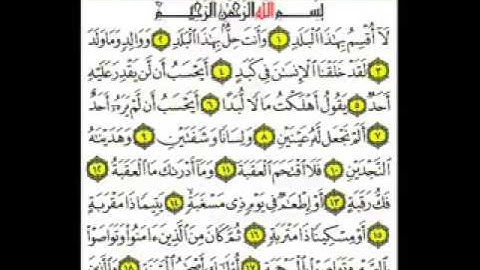 بِسْمِ اللَّهِ الرَّحْمَٰنِ الرَّحِيمِ
لَا أُقْسِمُ بِهَٰذَا الْبَلَدِ ١ وَأَنتَ حِلٌّ بِهَٰذَا الْبَلَدِ ٢ وَوَالِدٍ وَمَا وَلَدَ
٣ لَقَدْ خَلَقْنَا الْإِنسَانَ فِي كَبَدٍ ٤ أَيَحْسَبُ أَن لَّن يَقْدِرَ عَلَيْهِ
أَحَدٌ ٥ يَقُولُ أَهْلَكْتُ مَالًا لُّبَدًا ٦ أَيَحْسَبُ أَن لَّمْ يَرَهُ أَحَدٌ
٧ أَلَمْ نَجْعَل لَّهُ عَيْنَيْنِ ٨ وَلِسَانًا وَشَفَتَيْنِ ٩ وَهَدَيْنَاهُ
النَّجْدَيْنِ ١٠ فَلَا اقْتَحَمَ الْعَقَبَةَ ١١ وَمَا أَدْرَاكَ مَا الْعَقَبَةُ ١٢
فَكُّ رَقَبَةٍ ١٣ أَوْ إِطْعَامٌ فِي يَوْمٍ ذِي مَسْغَبَةٍ ١٤ يَتِيمًا ذَا مَقْرَبَةٍ
١٥ أَوْ مِسْكِينًا ذَا مَتْرَبَةٍ ١٦ ثُمَّ كَانَ مِنَ الَّذِينَ آمَنُوا وَتَوَاصَوْا
بِالصَّبْرِ وَتَوَاصَوْا بِالْمَرْحَمَةِ ١٧ أُولَٰئِكَ أَصْحَابُ الْمَيْمَنَةِ ١٨ وَالَّذِينَ